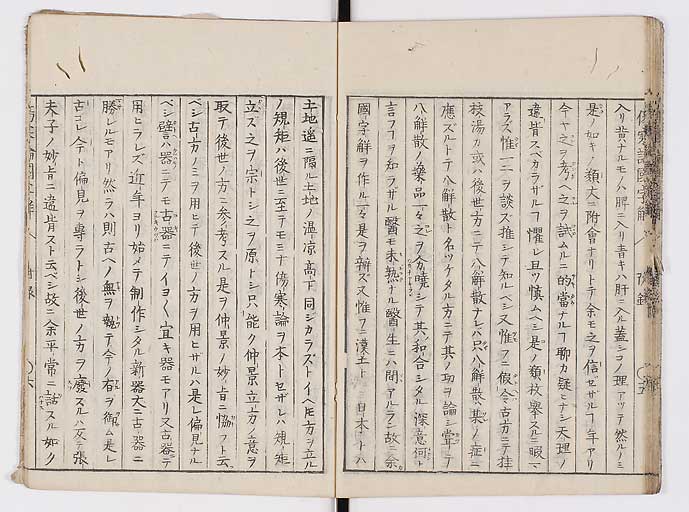 入リ黄ナルモノハ脾ニ入リ青キハ肝ニ入ル蓋シコノ理アッテ然ルノミ
是ノ如キノ類大ニ附會ナリトテ余モ之ヲ信セザルフ年アリ
今ヤ之ヲ考ヘ之ヲ試ムルニ的當ナルフ聊カ疑ヒナシ天理ノ
違背スベカラザルフ懼レ且ツ慎ムヘシ是ノ類枚舉スルニ暇
アラス惟一二ヲ談ズ推シテ知ルベシ又惟フニ假令古方ニテ桂
枝湯カ或ハ後世方ニテ八解散ナレハ只八解散ハ某ノ症ニ
應ズルトテ八解散ト名ツケタル方ニテ其ノ功ヲ論シ當ニテ
八解散ノ藥品一々之ヲ分曉シテ其ノ和合シタル深意何ト
言フフヲ知ラザル醫モ未熟ナル醫生ニハ間アルラン故ニ余
國字解ヲ作ル一々是ヲ辨ズ又惟フニ漢土ト 日本トハ
土地遙ニ隔ル土地ノ温凉高下同ジカラズトイヘ𪜈方ヲ立ル
ノ規矩ハ後世ニ至テモミナ傷寒論ヲ本トセザレハ規矩
立ズ之ヲ宗トシ之ヲ原トシ只能ク仲景立方ノ意ヲ
取テ後世ノ方ニ参考スル是ヲ仲景ノ妙旨ニ協フト云
ベシ古方ノミヲ用ヒテ後世ノ方ヲ用ヒザルハ是レ偏見ナル
ベシ譬ハ器ニテモ古器ニテイヨく宜キ器モアリ又古器ニテ
用ヒラレズ近年ヨリ始メテ制作シタル新器大ニ古ノ器ニ
勝レルモアリ然ラハ則古ヘノ無ヲ執テ今ノ有ヲ御ス是レ
古コレ今ト偏見ヲ專ラトシ後世ノ方ヲ廢スルハ反テ張
夫子ノ妙旨ニ違背スト云ベシ故ニ余平常ニ話スル如ク